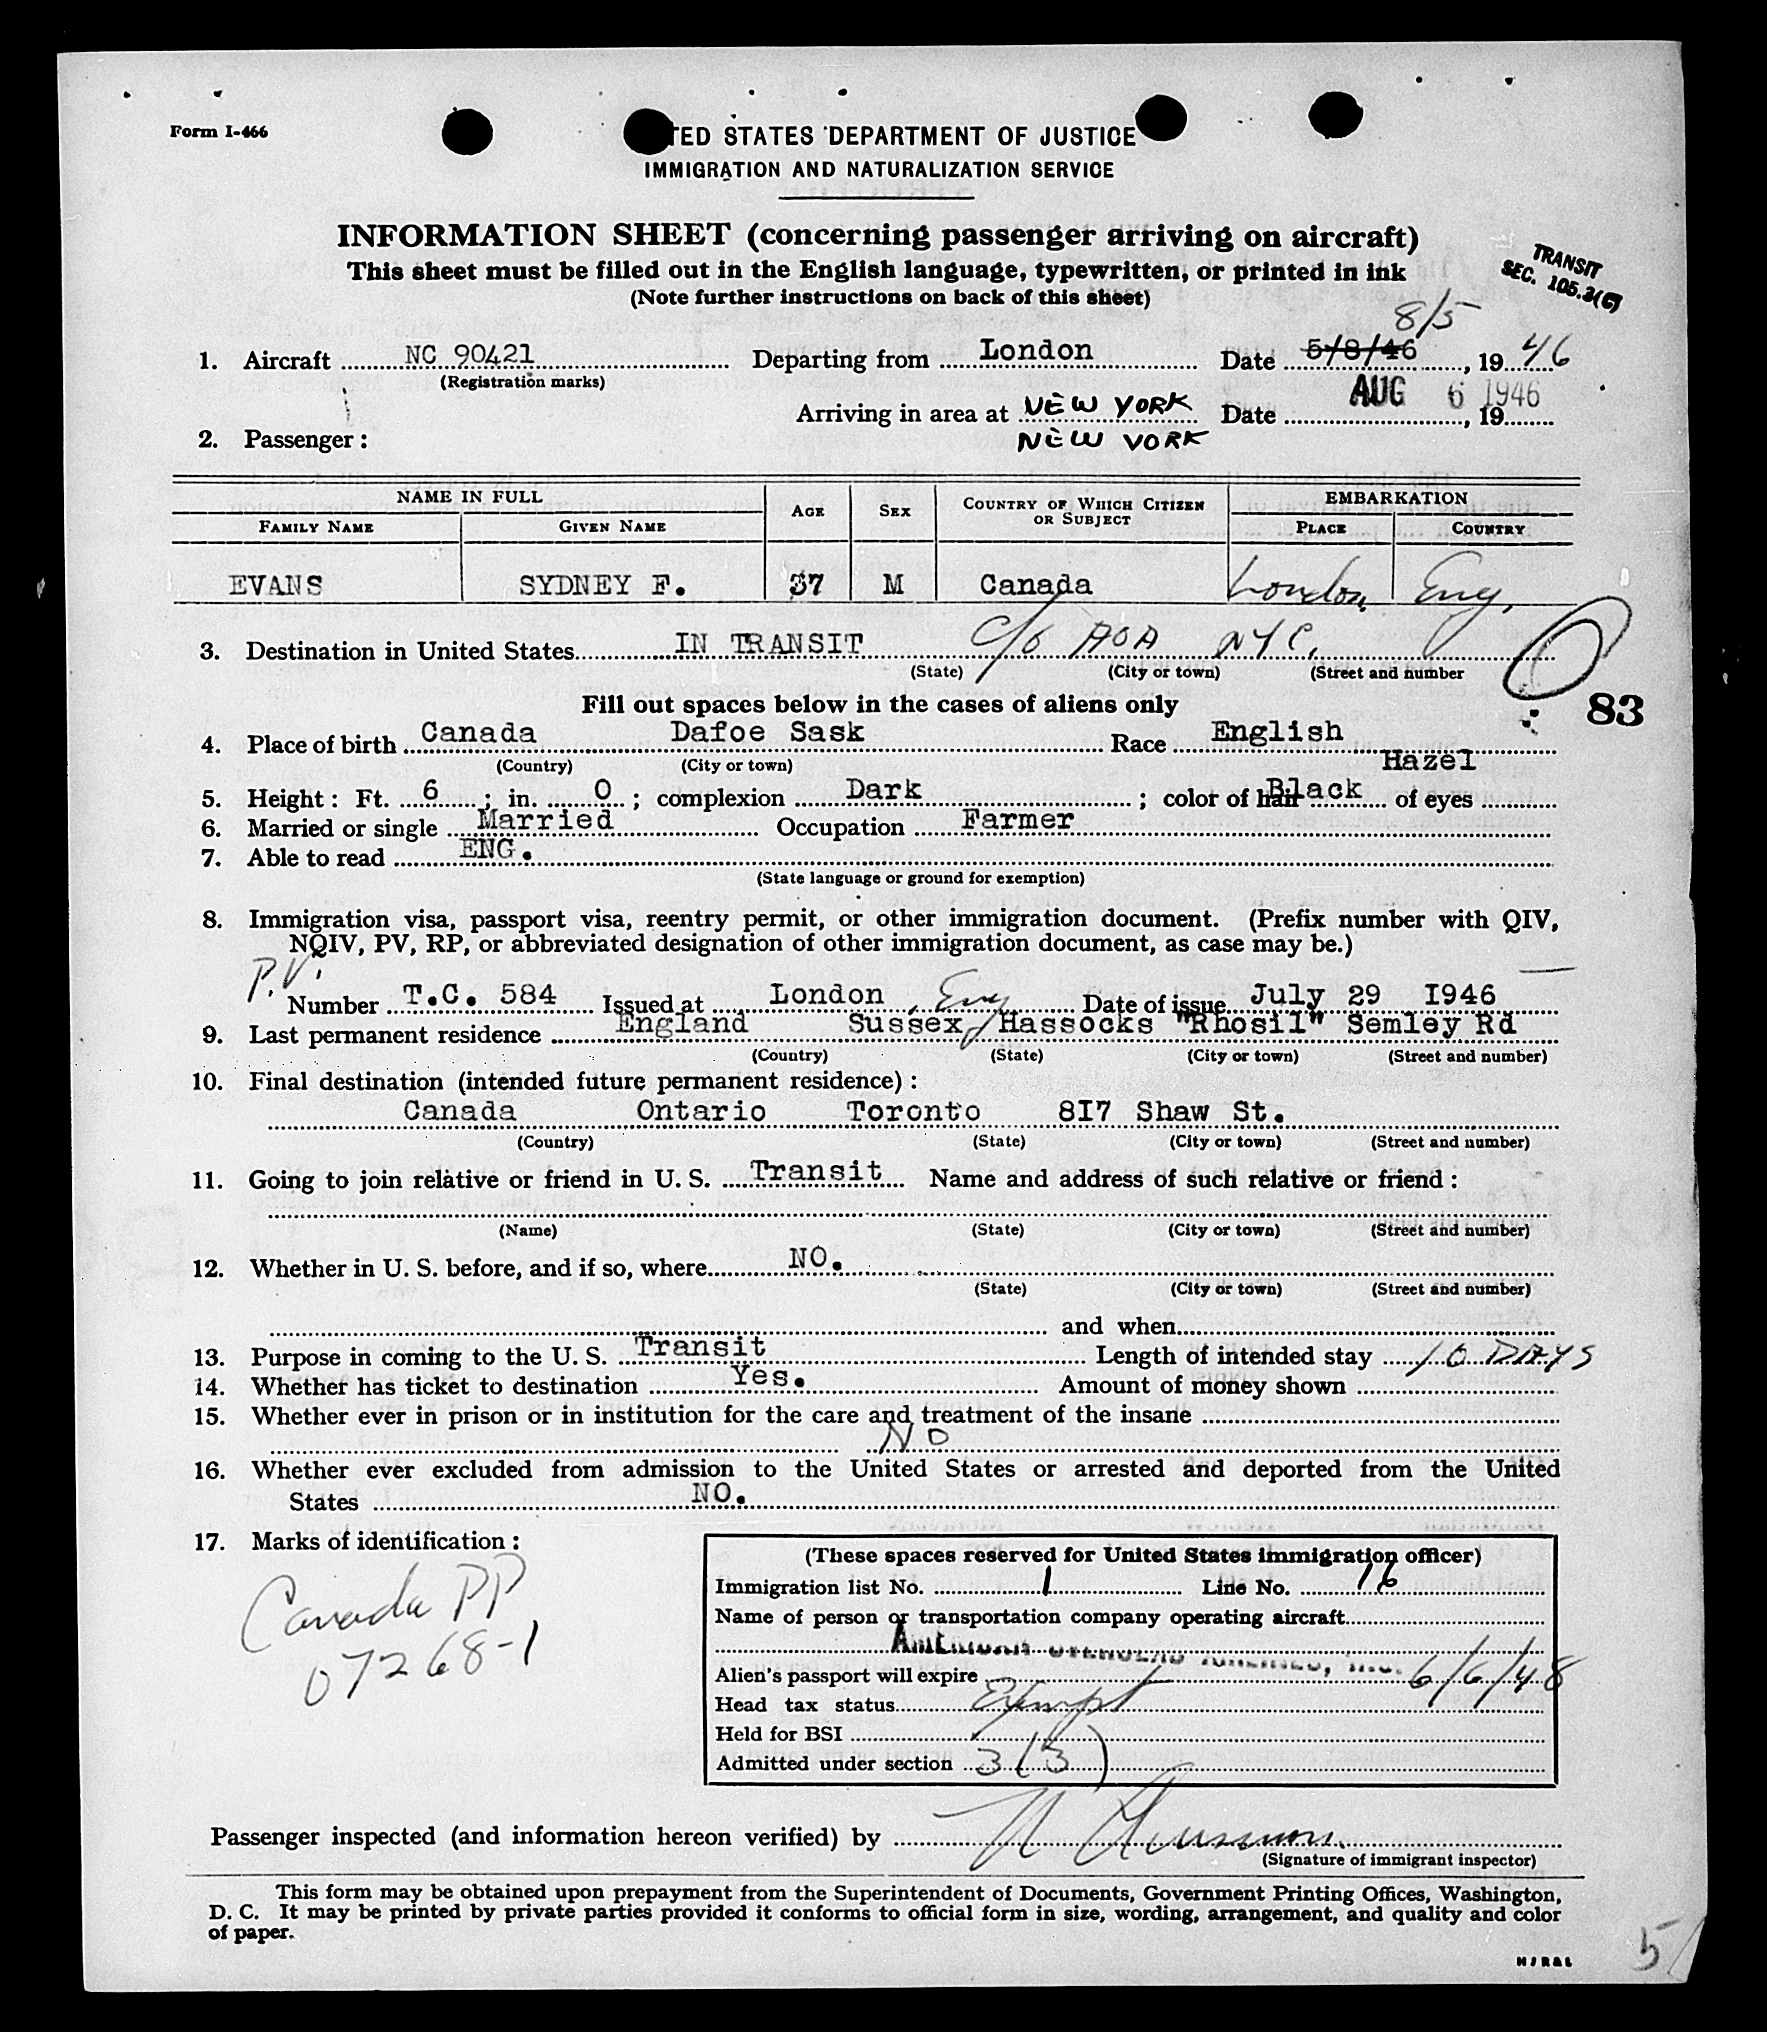 Form I-466
TED STATES DEPARTMENT OF JUSTICE
IMMIGRATION AND NATURALIZATION SERVICE
INFORMATION SHEET (concerning passenger arriving on aircraft)
This sheet must be filled out in the English language, typewritten, or printed in ink
(Note further instructions on back of this sheet)
TRANSIT
SEC. 105.3(6)
8/5
1. Aircraft NC 90421 Departing from London Date 5/8/46, 19 46
(Registration marks)
Arriving in area at NEW YORK Date AUG 6 1946, 19
2. Passenger: NEW YORK
NAME IN FULL AGE SEX COUNTRY OF WHICH CITIZEN OR SUBJECT EMBARKATION
FAMILY NAME GIVEN NAME PLACE COUNTRY
EVANS SYDNEY F. 37 M Canada London, Eng.
3. Destination in United States IN TRANSIT c/o AOA NYC.
(State) (City or town) (Street and number
Fill out spaces below in the cases of aliens only
83
4. Place of birth Canada Dafoe Sask Race English
(Country) (City or town) Hazel
5. Height: Ft. 6; in. 0; complexion Dark; color of hair Black of eyes
6. Married or single Married Occupation Farmer
7. Able to read ENG.
(State language or ground for exemption)
8. Immigration visa, passport visa, reentry permit, or other immigration document. (Prefix number with QIV,
NQIV, PV, RP, or abbreviated designation of other immigration document, as case may be.)
P.V.
Number T.C. 584 Issued at London, Eng Date of issue July 29 I946
9. Last permanent residence England Sussex Hassocks "Rhosil" Semley Rd
(Country) (State) (City or town) (Street and number)
10. Final destination (intended future permanent residence):
Canada Ontario Toronto 8I7 Shaw St.
(Country) (State) (City or town) (Street and number)
11. Going to join relative or friend in U. S. Transit Name and address of such relative or friend:
(Name) (State) (City or town) (Street and number)
12. Whether in U. S. before, and if so, where NO.
(State) (City or town) (Street and number)
and when
13. Purpose in coming to the U. S. Transit Length of intended stay 10 DAYS
14. Whether has ticket to destination Yes. Amount of money shown
15. Whether ever in prison or in institution for the care and treatment of the insane
NO
16. Whether ever excluded from admission to the United States or arrested and deported from the United
States NO.
17. Marks of identification:
Canada PP
07268-1
(These spaces reserved for United States immigration officer)
Immigration list No. 1 Line No. 16
Name of person or transportation company operating aircraft
AMERICAN OVERSEAS AIRLINES, INC.
Alien's passport will expire 6/6/48
Head tax status Exempt
Held for BSI
Admitted under section 3(3)
Passenger inspected (and information hereon verified) by
(Signature of immigrant inspector)
This form may be obtained upon prepayment from the Superintendent of Documents, Government Printing Offices, Washington,
D. C. It may be printed by private parties provided it conforms to official form in size, wording, arrangement, and quality and color
of paper.
5